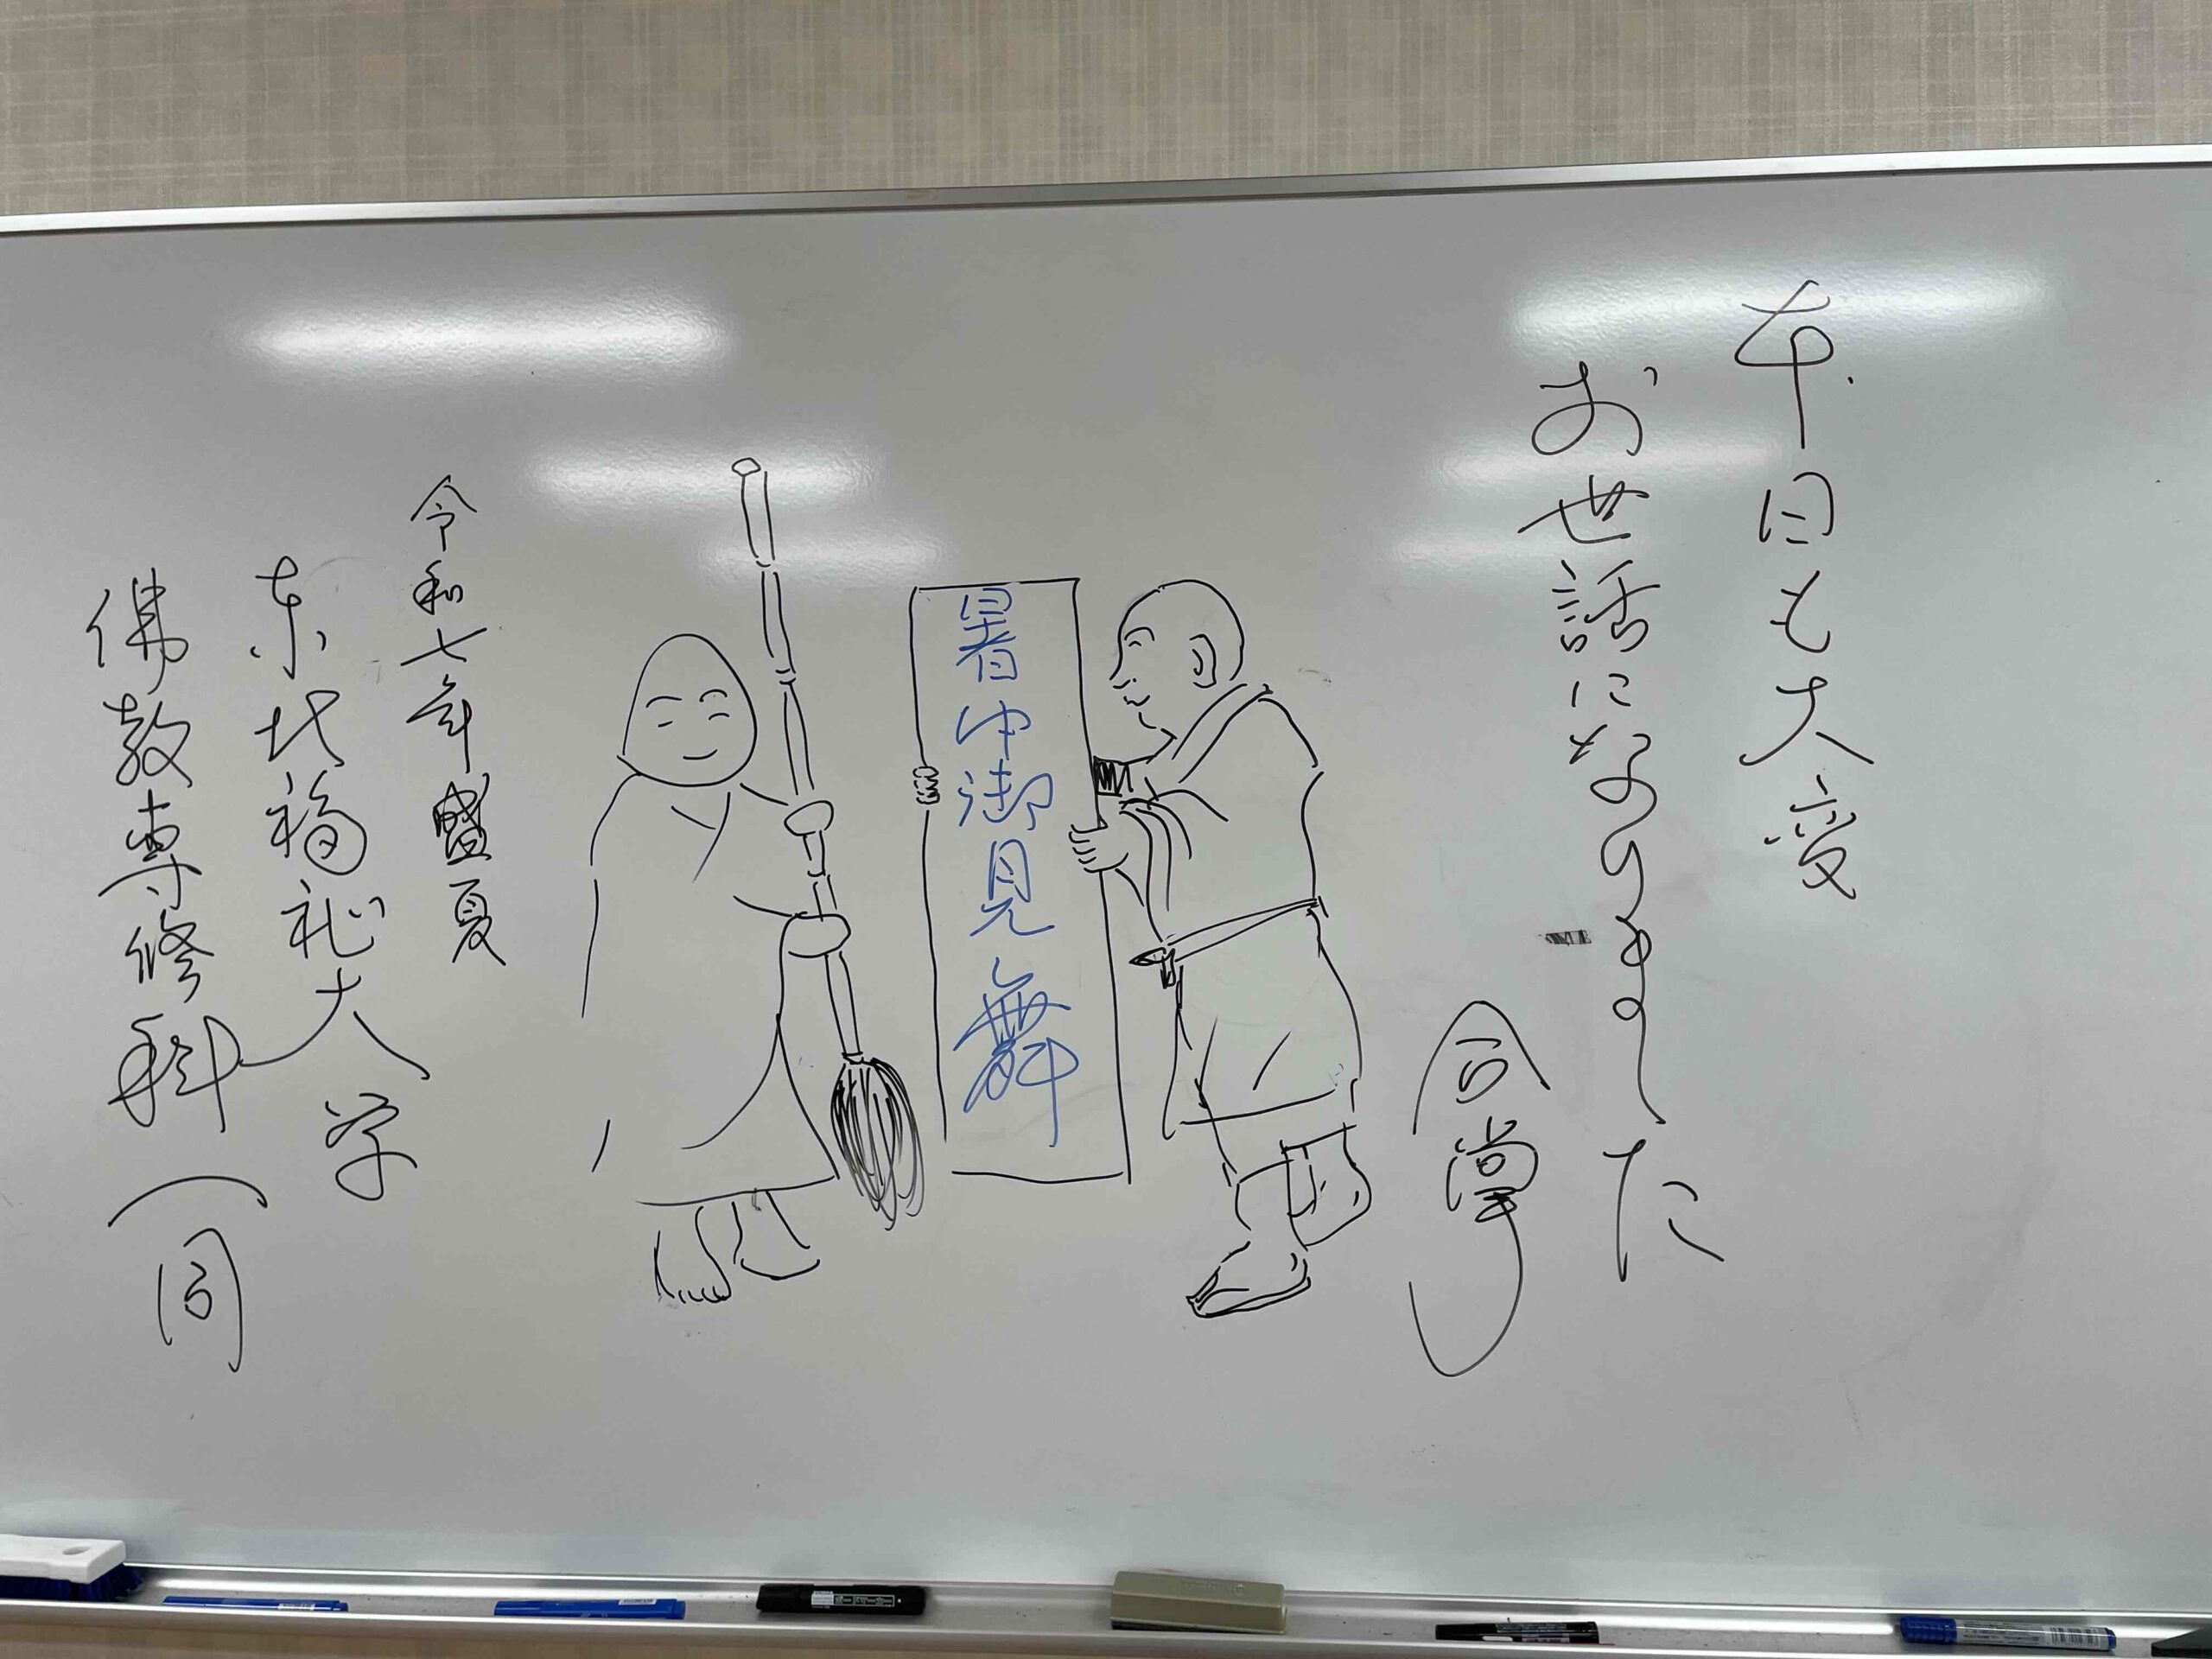 本日も大変
お世話になりました
合掌
暑中御見舞
令和七年盛夏
東北福祉大学
佛教専修科一同